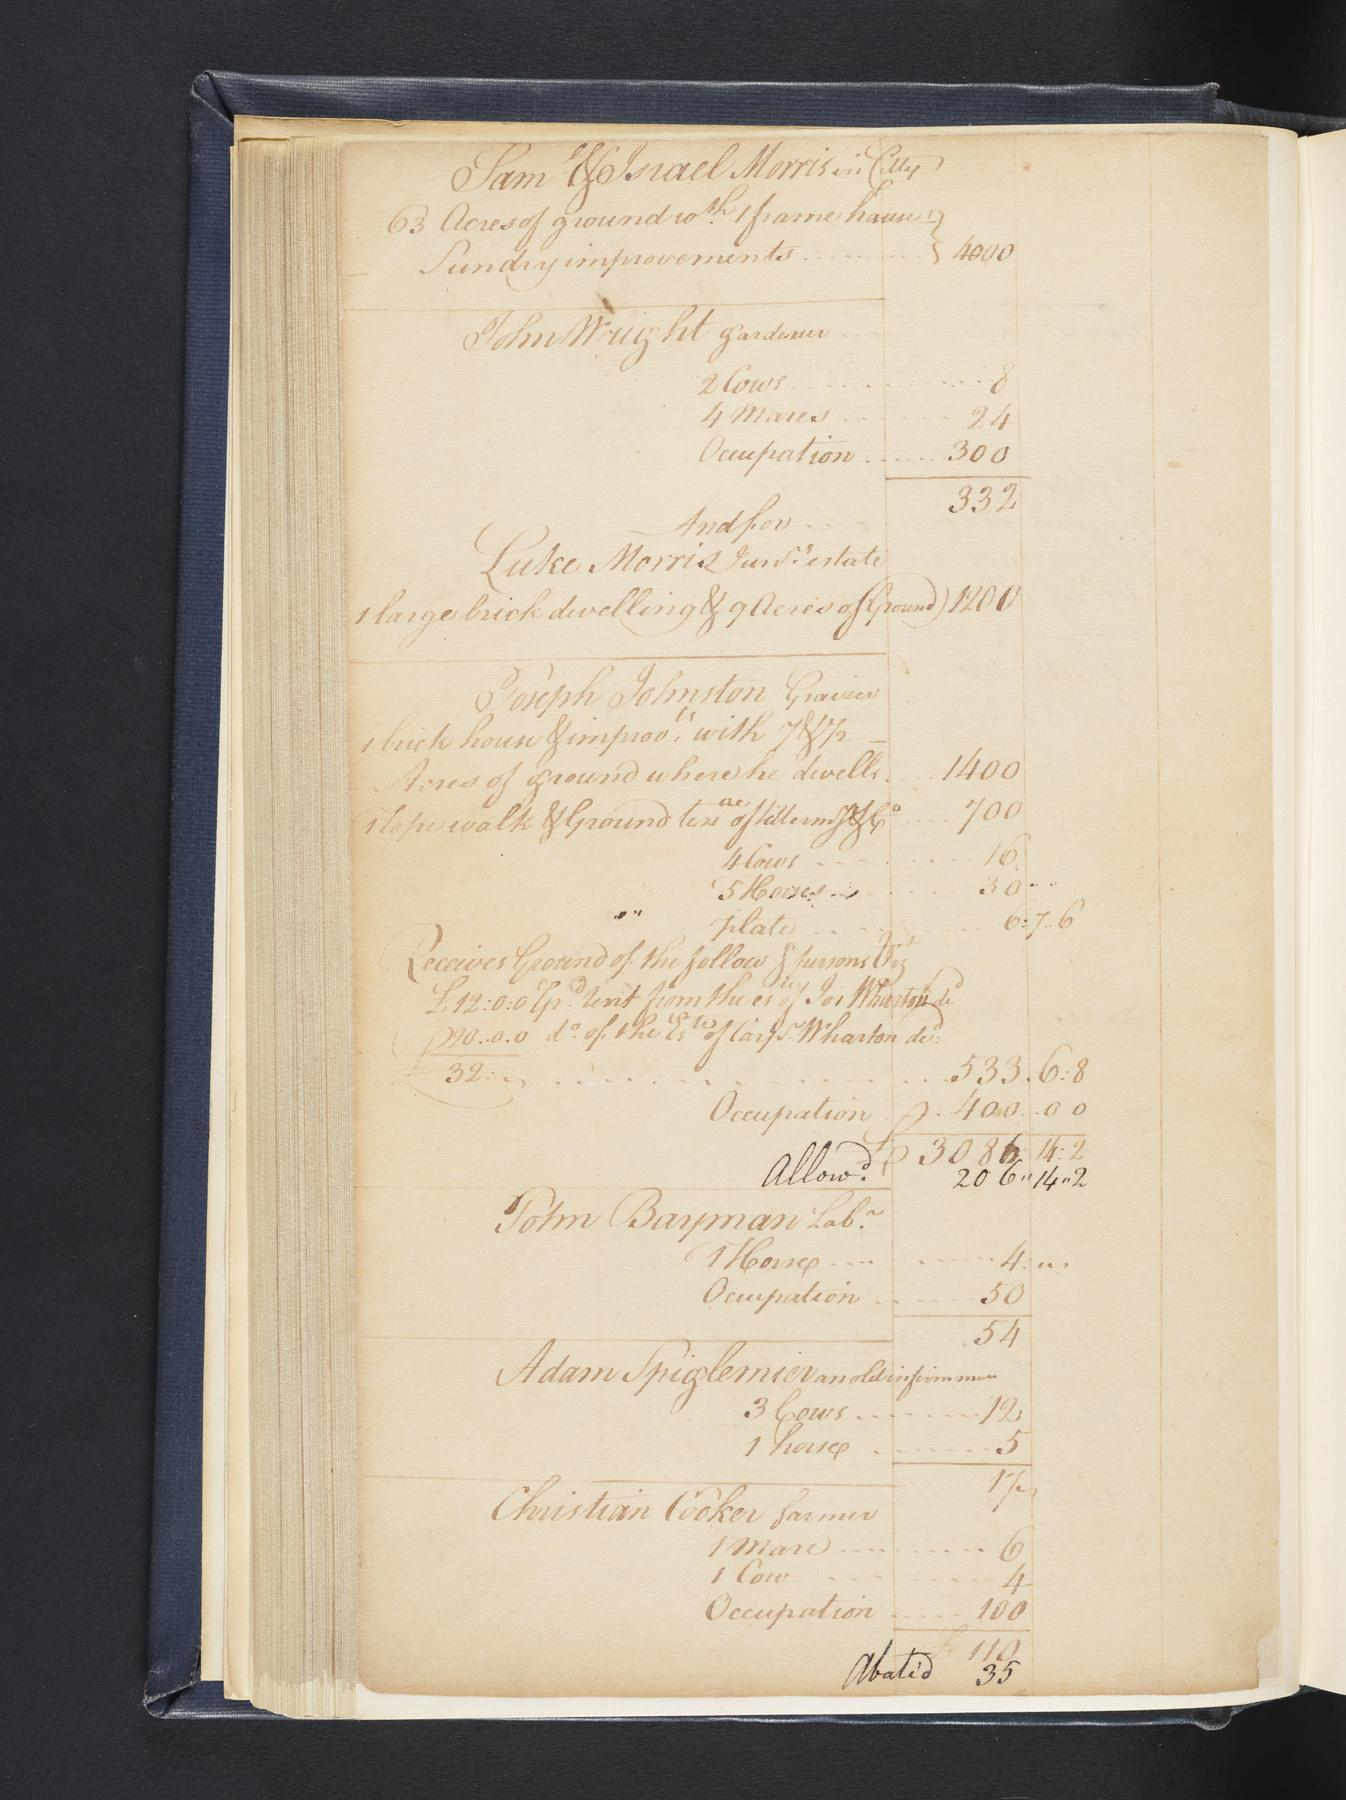 Sam & Israel Morris in Citty
63 Acres of ground wth. 1 frame house &
Sundry improvements ......... } 4000
John Wright gardener
2 Cows .......... 8
4 Mares ...... 24
Ocupation ...... 300
332
And for ...
Luke Morris Junr. estate
1 large brick dwelling & 9 Acres of Ground) 1200
Joseph Johnston Grazier
1 brick house & improvts. with 7 & 1/2
Acres of ground where he dwells .... 1400
1 Rope walk & Ground & Co .... 700
4 Cows ........ 16
5 Horses ...... 30 " "
plate ........ 6:7..6
Receives Ground of the follow.g persons Viz
£12:0:0 Pr. rent from the este of Jos Wharton decd
£20..0.0 do. of the Este of Carpr. Wharton decd:
32: " ............ 533.6:8
Occupation £. 400..00
£ 3086: 14:2
Allowd. 206"14"2
John Bayman Labr.
1 Horse ....... 4: " "
Ocupation ...... 50
54
Adam Spiglemier an old infirm man
3 Cows ........ 12
1 horse ........ 5
17
Christian Cooker farmer
1 Mare ........ 6
1 Cow ........ 4
Occupation ...... 100
£ 110
Abated 35